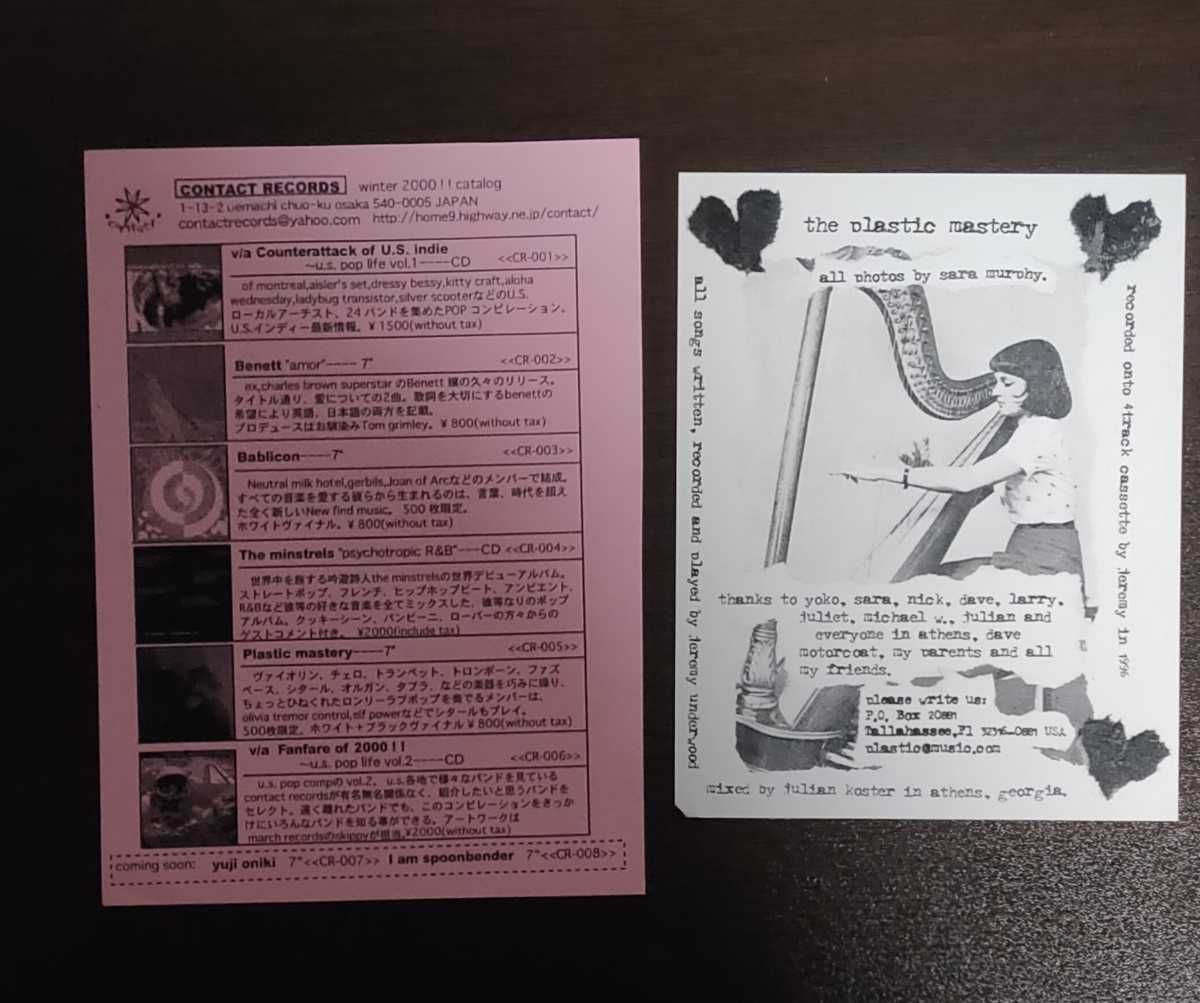 contact
CONTACT RECORDS winter 2000!! catalog
1-13-2 uemachi chuo-ku osaka 540-0005 JAPAN
contactrecords@yahoo.com http://home9.highway.ne.jp/contact/
v/a Counterattack of U.S. indie
~u.s. pop life vol.1----CD <<CR-001>>
of montreal,aisler's set,dressy bessy,kitty craft,aloha
wednesday,ladybug transistor,silver scooterなどのU.S.
ローカルアーチスト、24バンドを集めたPOPコンピレーション。
U.S.インディー最新情報。¥1500(without tax)
Benett "amor"---- 7" <<CR-002>>
ex,charles brown superstarのBenett 嬢の久々のリリース。
タイトル通り、愛についての2曲。歌詞を大切にするbenettの
希望により英語、日本語の両方を記載。
プロデュースはお馴染みTom grimley。¥800(without tax)
Bablicon----7" <<CR-003>>
Neutral milk hotel,gerbils,Joan of Arcなどのメンバーで結成。
すべての音楽を愛する彼らから生まれるのは、言葉、時代を超え
た全く新しいNew find music。 500枚限定。
ホワイトヴァイナル。¥800(without tax)
The minstrels "psychotropic R&B"---CD <<CR-004>>
世界中を旅する吟遊詩人the minstrelsの世界デビューアルバム。
ストレートポップ、フレンチ、ヒップホップビート、アンビエント、
R&Bなど彼等の好きな音楽を全てミックスした、彼等なりのポップ
アルバム。クッキーシーン、バンビーニ、ローバーの方々からの
ゲストコメント付き。 ¥2000(include tax)
Plastic mastery----7" <<CR-005>>
ヴァイオリン、チェロ、トランペット、トロンボーン、ファズ
ベース、シタール、オルガン、タブラ、などの楽器を巧みに操り、
ちょっとひねくれたロンリーラブポップを奏でるメンバーは、
olivia tremor control,elf powerなどでシタールもプレイ。
500枚限定。ホワイト+ブラックヴァイナル¥800(without tax)
v/a Fanfare of 2000!!
~u.s. pop life vol.2----CD <<CR-006>>
u.s. pop compの vol.2。 u.s.各地で様々なバンドを見ている
contact recordsが有名無名関係なく、紹介したいと思うバンドを
セレクト。遠く離れたバンドでも、このコンピレーションをきっか
けにいろんなバンドを知る事ができる。アートワークは
march recordsのskippyが担当。¥2000(without tax)
coming soon: yuji oniki 7"<<CR-007>> I am spoonbender 7"<<CR-008>>
the plastic mastery
all photos by sara murphy.
all songs written, recorded and played by jeremy underwood
recorded onto 4track cassette by jeremy in 1996
thanks to yoko, sara, nick, dave, larry,
juliet, michael w., julian and
everyone in athens, dave
motorcoat, my parents and all
my friends.
please write us:
P.O. Box
Tallahassee,Fl USA
plastic@music.com
mixed by julian koster in athens, georgia.